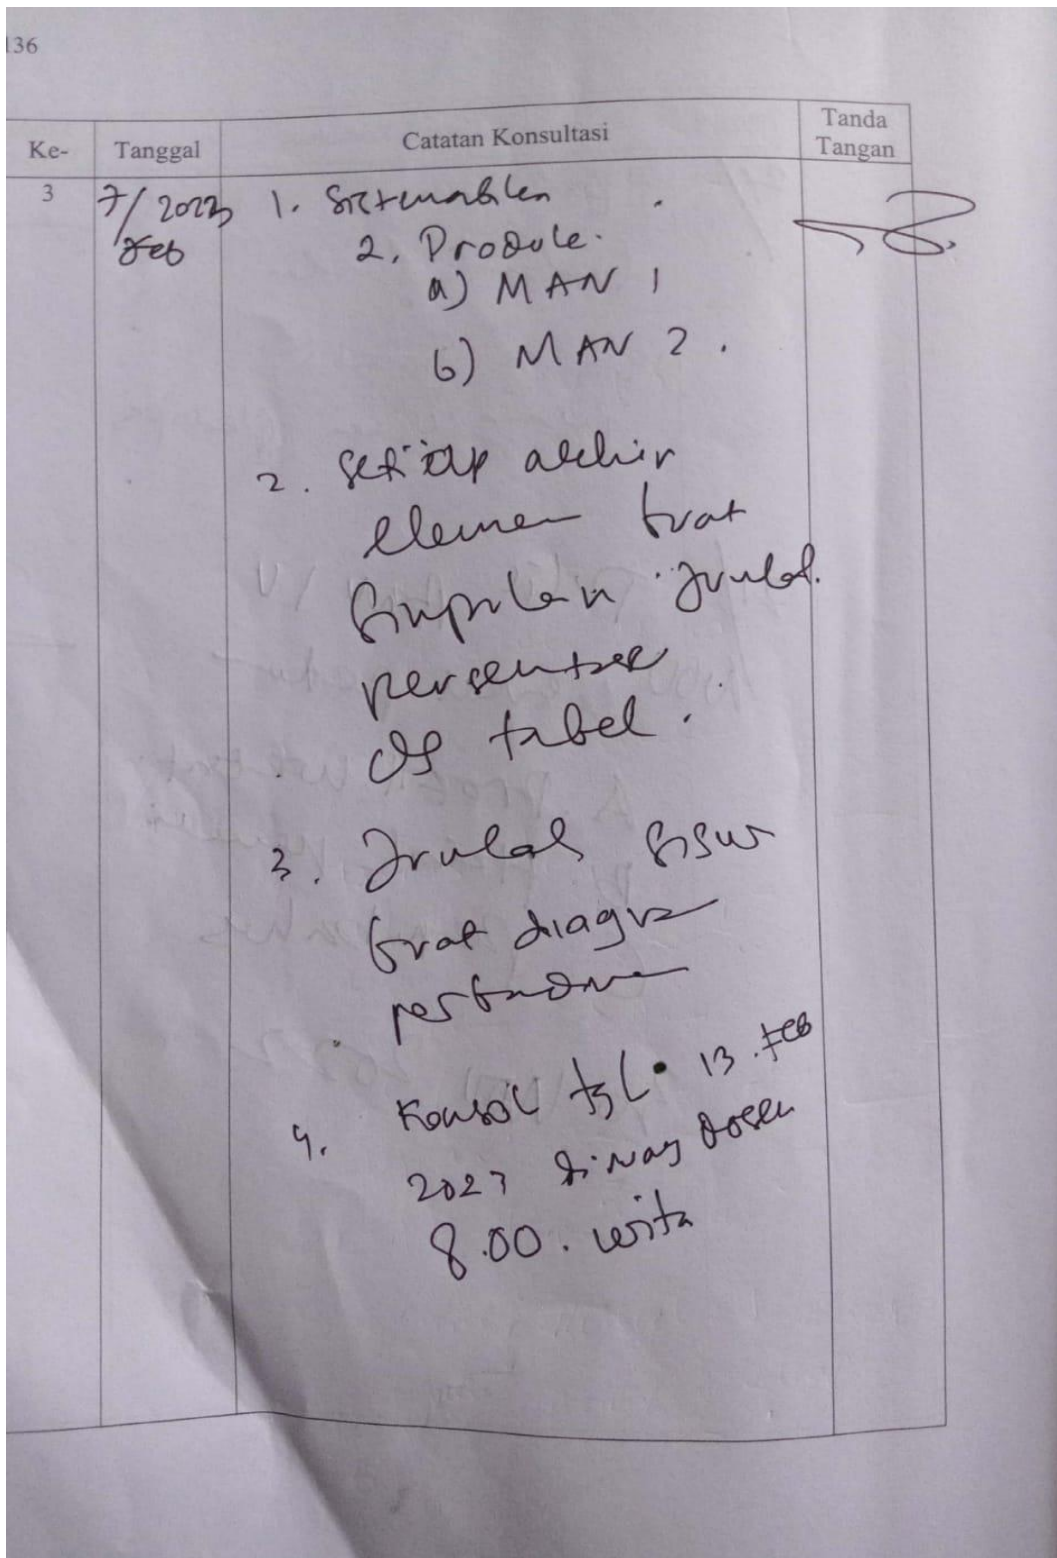 136
Ke- Tanggal Catatan Konsultasi Tanda Tangan
3 7/2023 1. Sistematika
Feb 2. Produk.
a) MAN 1
b) MAN 2.
2. Setiap akhir
elemen buat
Simpulan jumlah
persentase
dg tabel.
3. Jumlah siswa
buat diagram
4. Konsul tgl. 13. Feb
2023 Ruang Dosen
8.00. wita